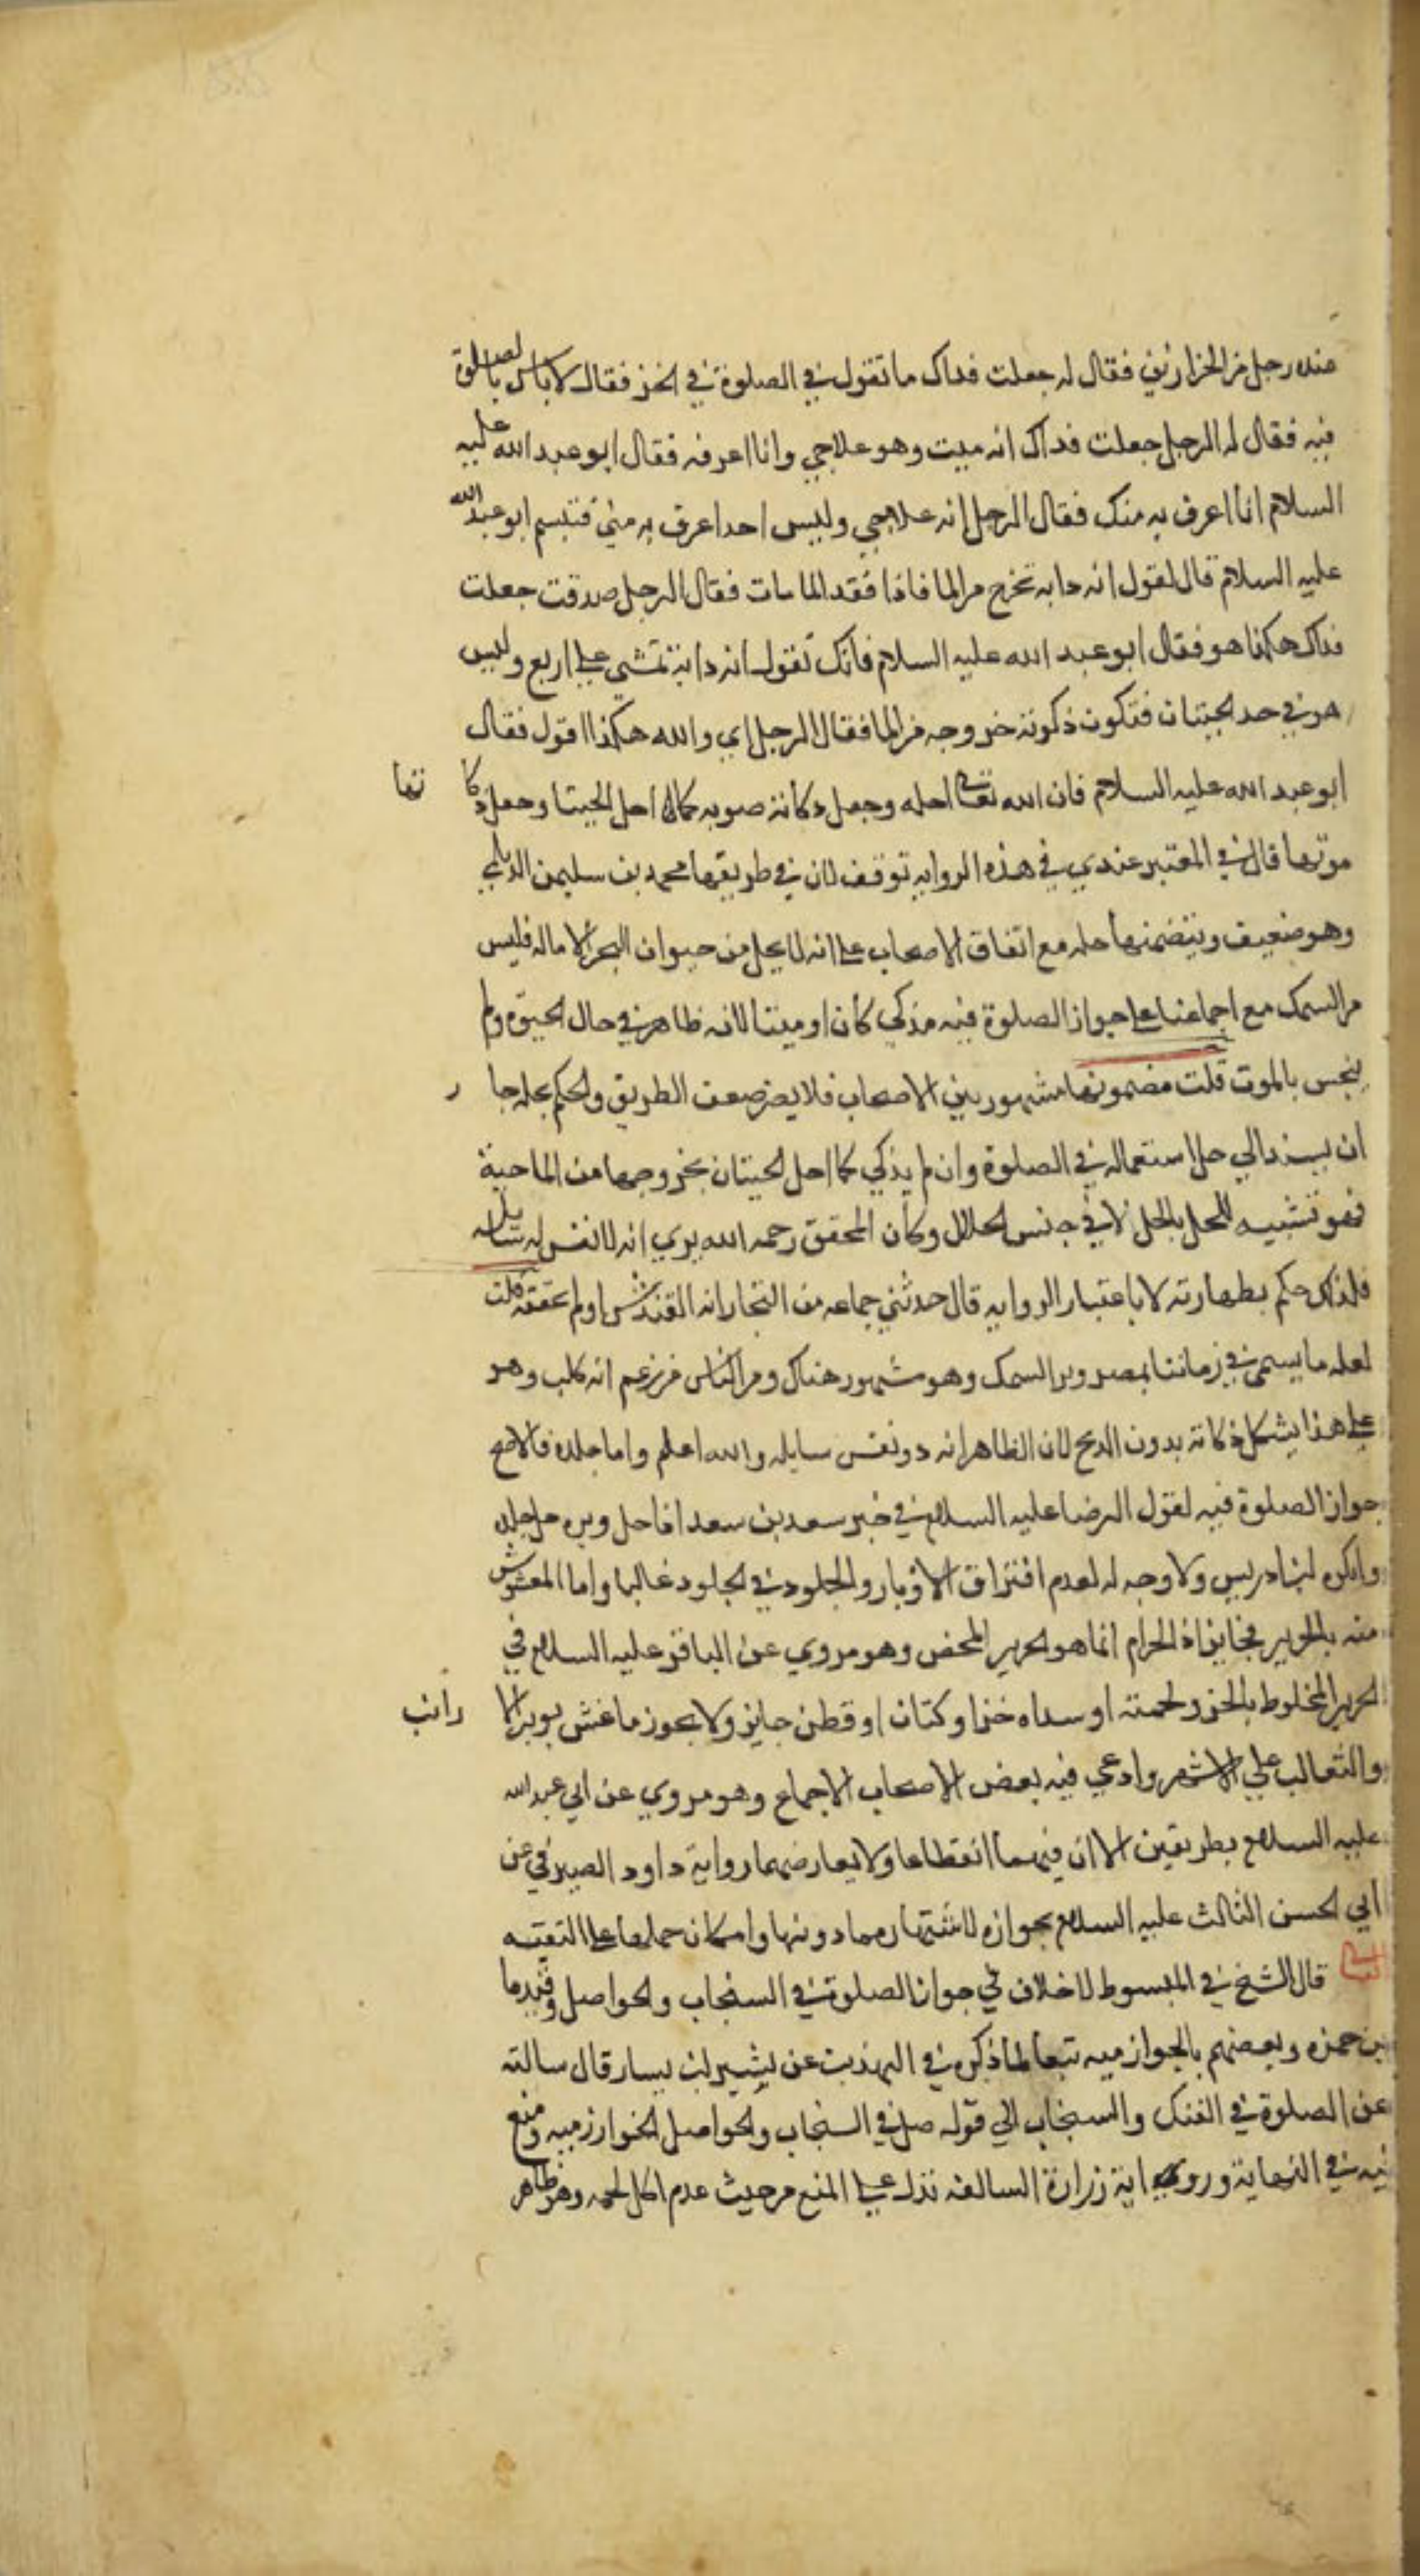 عنده رجل من الخزازين فقال له جعلت فداك ما تقول في الصلوة في الخز فقال لا باس بالصلوة
فيه فقال له الرجل جعلت فداك انه ميت وهو علاجي وانا اعرفه فقال ابو عبد الله عليه
السلام انا اعرف به منك فقال الرجل انه علاجي وليس احدا عرف به مني فتبسم ابو عبد الله
عليه السلام قال لتقول انه دابه تخرج من الما فاذا فقد الما مات فقال الرجل صدقت جعلت
فداك هكذا هو فقال ابو عبد الله عليه السلام فانك تقول انه دابة تمشي على اربع وليس
هو في حد الحيتان فتكون ذكوته خروجه من الما فقال الرجل اي والله هكذا اقول فقال
ابو عبد الله عليه السلام فان الله تعالى احله وجعل ذكاته موته كما احل الحيتا وجعل ذكا تها
موتها قال في المعتبر عندي في هذه الروايه توقف لان في طريقها محمد بن سليمن الديلمي
وهو ضعيف ويتضمنها حله مع اتفاق الاصحاب على انه لا يحل من حيوان البحر الا ماله فليس
من السمك مع اجماعنا على جواز الصلوة فيه مذكي كان او ميتا لانه طاهر في حال الحيوة ولم
ينجس بالموت قلت مضمونها مشهور بين الاصحاب فلا يضر ضعف الطريق والحكم بحله جا ز
ان يسند الي حل استعماله في الصلوة وان لم يذكي كما احل الحيتان بخروجها من الما حية
فهو تشبيه للحل بالحل لا في جنس الحلال وكان المحقق رحمه الله يري انه لا نفس له سايله
فلذلك حكم بطهارته لا باعتبار الروايه قال حدثني جماعه من التجار انه القندس ولم اتحققه قلت
لعله ما يسمى في زماننا بمصر وبر السمك وهو مشهور هناك ومن الناس من زعم انه كلب وهو
على هذا يشكل ذكاته بدون الذبح لان الظاهر انه ذو نفس سايله والله اعلم واما جلده فالاصح
جواز الصلوة فيه لقول الرضا عليه السلام في خبر سعد بن سعد اذا حل وبره حل جلده
وانكره ابن ادريس ولا وجه له لعدم افتراق الاوبار والجلود في الجلود غالبا واما المغشوش
منه بالحرير فجايز اذ الحرام انما هو الحرير المحض وهو مروي عن الباقر عليه السلام في
الحرير المخلوط بالخز ولحمته او سداه خز او كتان او قطن جايز ولا يجوز ما غش بوبر الا رانب
والثعالب علي الاشهر وادعي فيه بعض الاصحاب الاجماع وهو مروي عن ابي عبد الله
عليه السلام بطريقين الا ان فيهما انقطاعا ولا يعارضهما رواية داود الصيرفي عن
ابي الحسن الثالث عليه السلام بجوازه لاشتهارهما دونها وامكان حملها على التقيه
قال الشيخ في المبسوط لا خلاف في جواز الصلوة في السنجاب والحواصل وقيدها
بن حمزه وبعضهم بالخوارزميه تبعا لما ذكره في التهذيب عن بشير بن يسار قال سالته
عن الصلوة في الفنك والسنجاب الي قوله صل في السنجاب والحواصل الخوارزميه ومنع
فيه في النهاية ورواية زرارة السالفه تدل على المنع من حيث عدم اكل لحمه وهو ظاهر